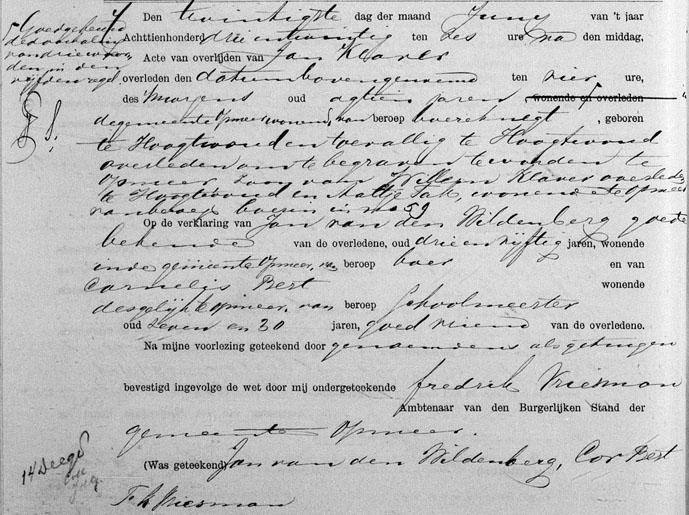 Den twintigste dag der maand Juny van 't jaar
Goedgekeurd
de doorhaling
van drie woor
den in den
vijfden regel
Achttienhonderd drieentwintig ten zes ure na den middag,
Acte van overlijden van Jan Klaver
overleden den datum bovengenoemd ten vier ure,
des Morgens oud agtien jaren wonende en overleden
de gemeente Opmeer, wonend, van beroep boereknegt, geboren
te Hoogtwoud en toevallig te Hoogtwoud
overleden om te begraven te worden te
Opmeer zoon van Willem Klaver overleden
te Hoogtwoud en Aaltje Tak, wonende te Opmeer
van beroep boerin in no 59
Op de verklaring van Jan van den Wildenberg goede
bekende van de overledene, oud drie en vijftig jaren, wonende
in de gemeente Opmeer, van beroep boer en van
Cornelis Bert wonende
desgelijk te Opmeer, van beroep Schoolmeester
oud zeven en 30 jaren, goed vriend van de overledene.
Na mijne voorlezing geteekend door genoemdens als getuigen
bevestigd ingevolge de wet door mij ondergeteekende fredrik Vriesman
Ambtenaar van den Burgerlijken Stand der
gemeente Opmeer.
(Was geteekend) Jan van den Wildenberg, Cor Bert
Fk Vriesman